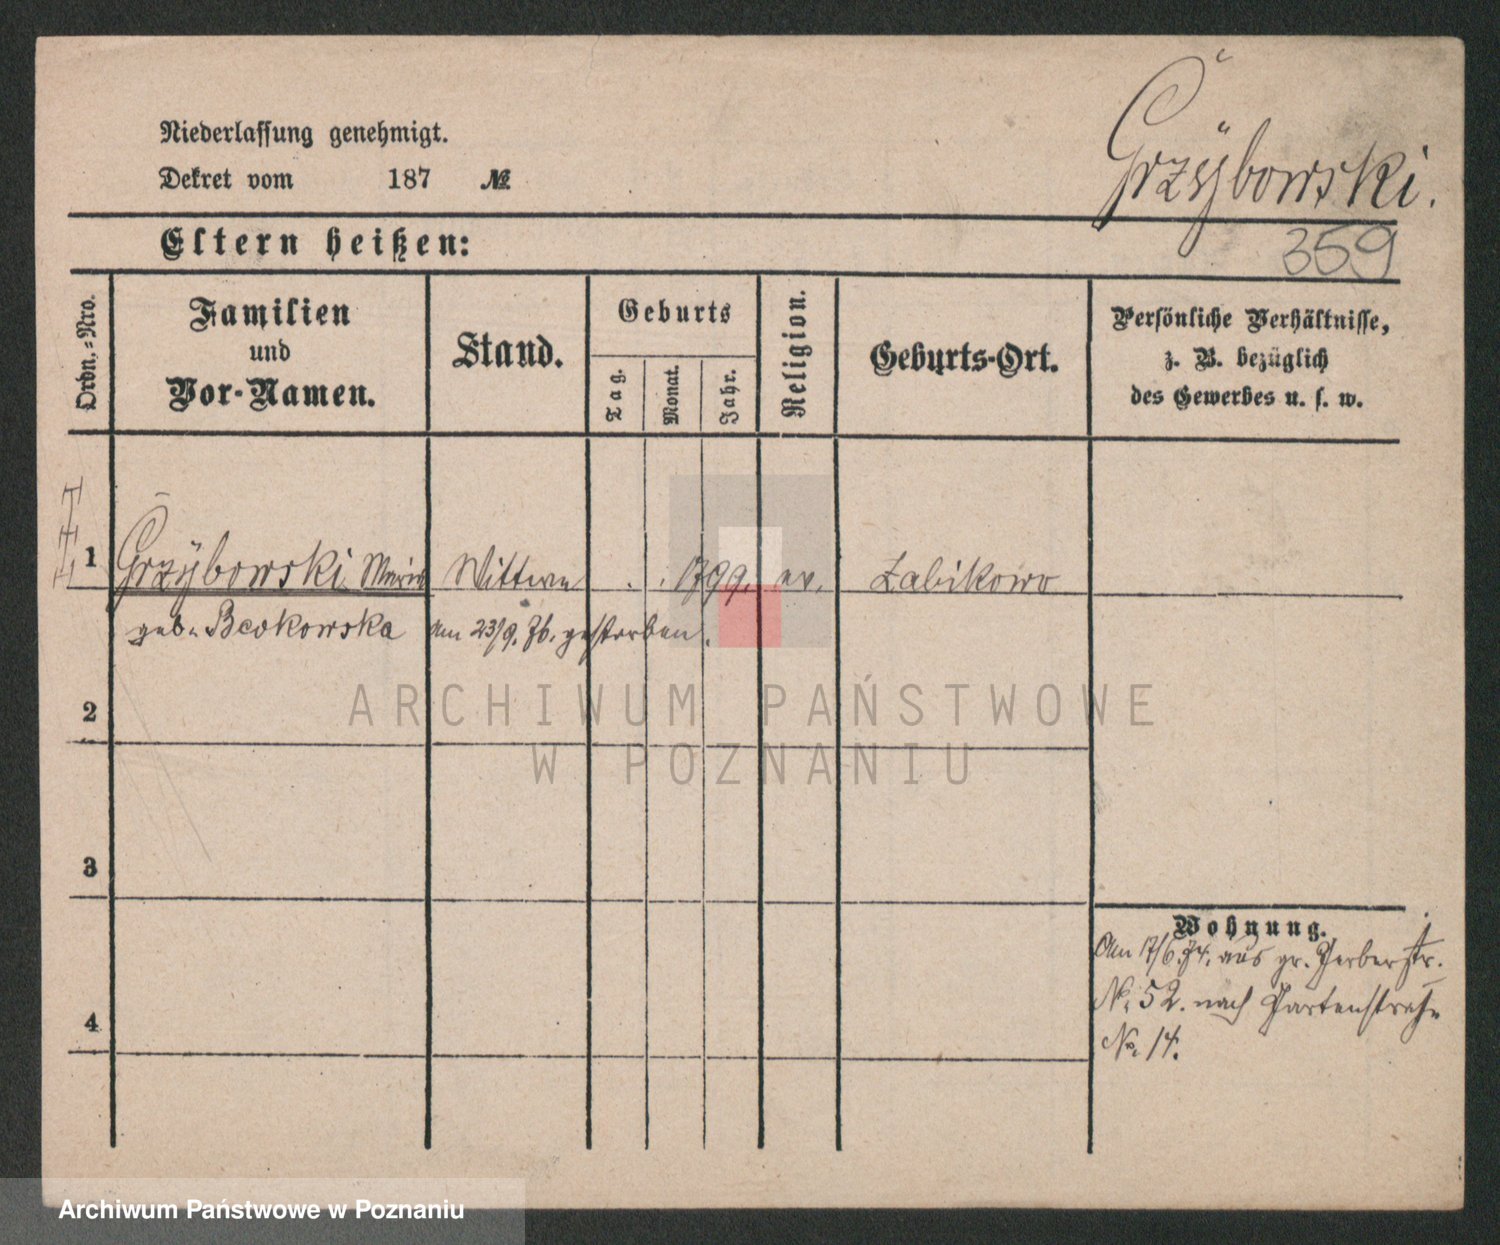 Grzÿbowski.
Niederlassung genehmigt.
Dekret vom 187 №
359
Eltern heißen:
Ordn.=Nro.
Familien
und
Vor-Namen.
Stand.
Geburts
Tag.
Monat.
Jahr.
Religion.
Geburts-Ort.
Persönliche Verhältnisse,
z. B. bezüglich
des Gewerbes u. s. w.
1
Grzÿbowski Maria Wittwe . . 1799. ev. Zabikowo
geb. am 23/9. 76. gestorben.
2
3
4
Wohnung.
Am 17/6.74. aus gr. Gerberstr.
No. 52. nach Gartenstraße
No. 14.
ARCHIWUM PAŃSTWOWE
W POZNANIU
Archiwum Państwowe w Poznaniu